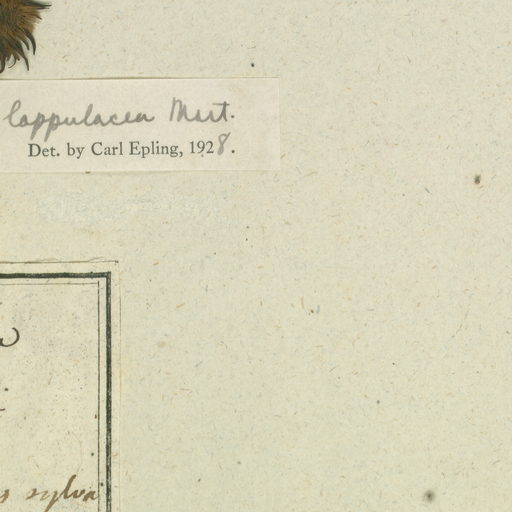 lappulacea Mart.
Det. by Carl Epling, 1928.
sylva